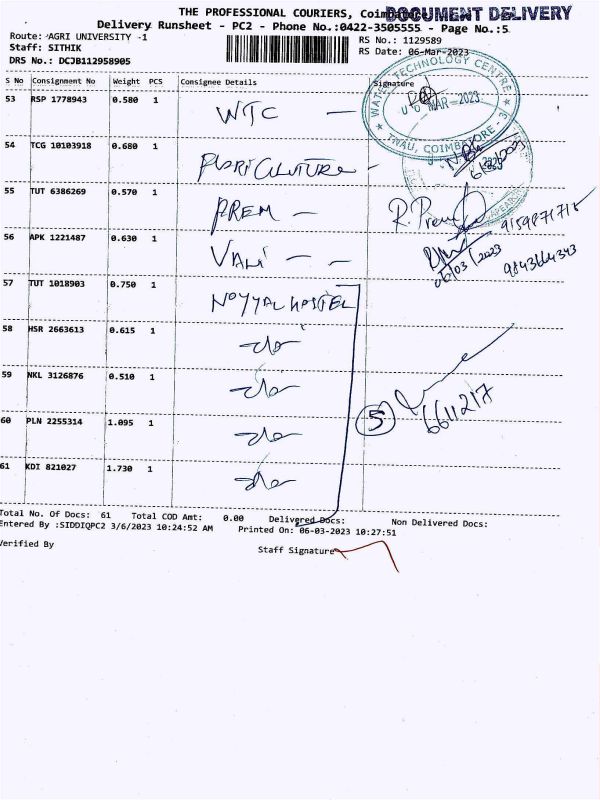 THE PROFESSIONAL COURIERS, Coimbatore
DOCUMENT DELIVERY
Delivery Runsheet - PC2 - Phone No.:0422-3505555 - Page No.:5
Route: AGRI UNIVERSITY -1
RS No.: 1129589
Staff: SITHIK
RS Date: 06-Mar-2023
DRS No.: DCJB112958905
S No Consignment No Weight PCS Consignee Details Signature
53 RSP 1778943 0.580 1 WTC —
WATER TECHNOLOGY CENTRE
06 MAR 2023
TNAU, COIMBATORE - 3
54 TCG 10103918 0.680 1 FLORICULTURE -
6/3/2023
55 TUT 6386269 0.570 1 PREM —
R. Prem
9159871715
56 APK 1221487 0.630 1 VANI — —
06/03/2023
9843664343
57 TUT 1018903 0.750 1 NOYYAL HOSTEL
58 HSR 2663613 0.615 1 -do-
59 NKL 3126876 0.510 1 -do-
5
6611217
60 PLN 2255314 1.095 1 -do-
61 KDI 821027 1.730 1 -do-
Total No. Of Docs: 61 Total COD Amt: 0.00 Delivered Docs: Non Delivered Docs:
Entered By :SIDDIQPC2 3/6/2023 10:24:52 AM Printed On: 06-03-2023 10:27:51
Verified By
Staff Signature